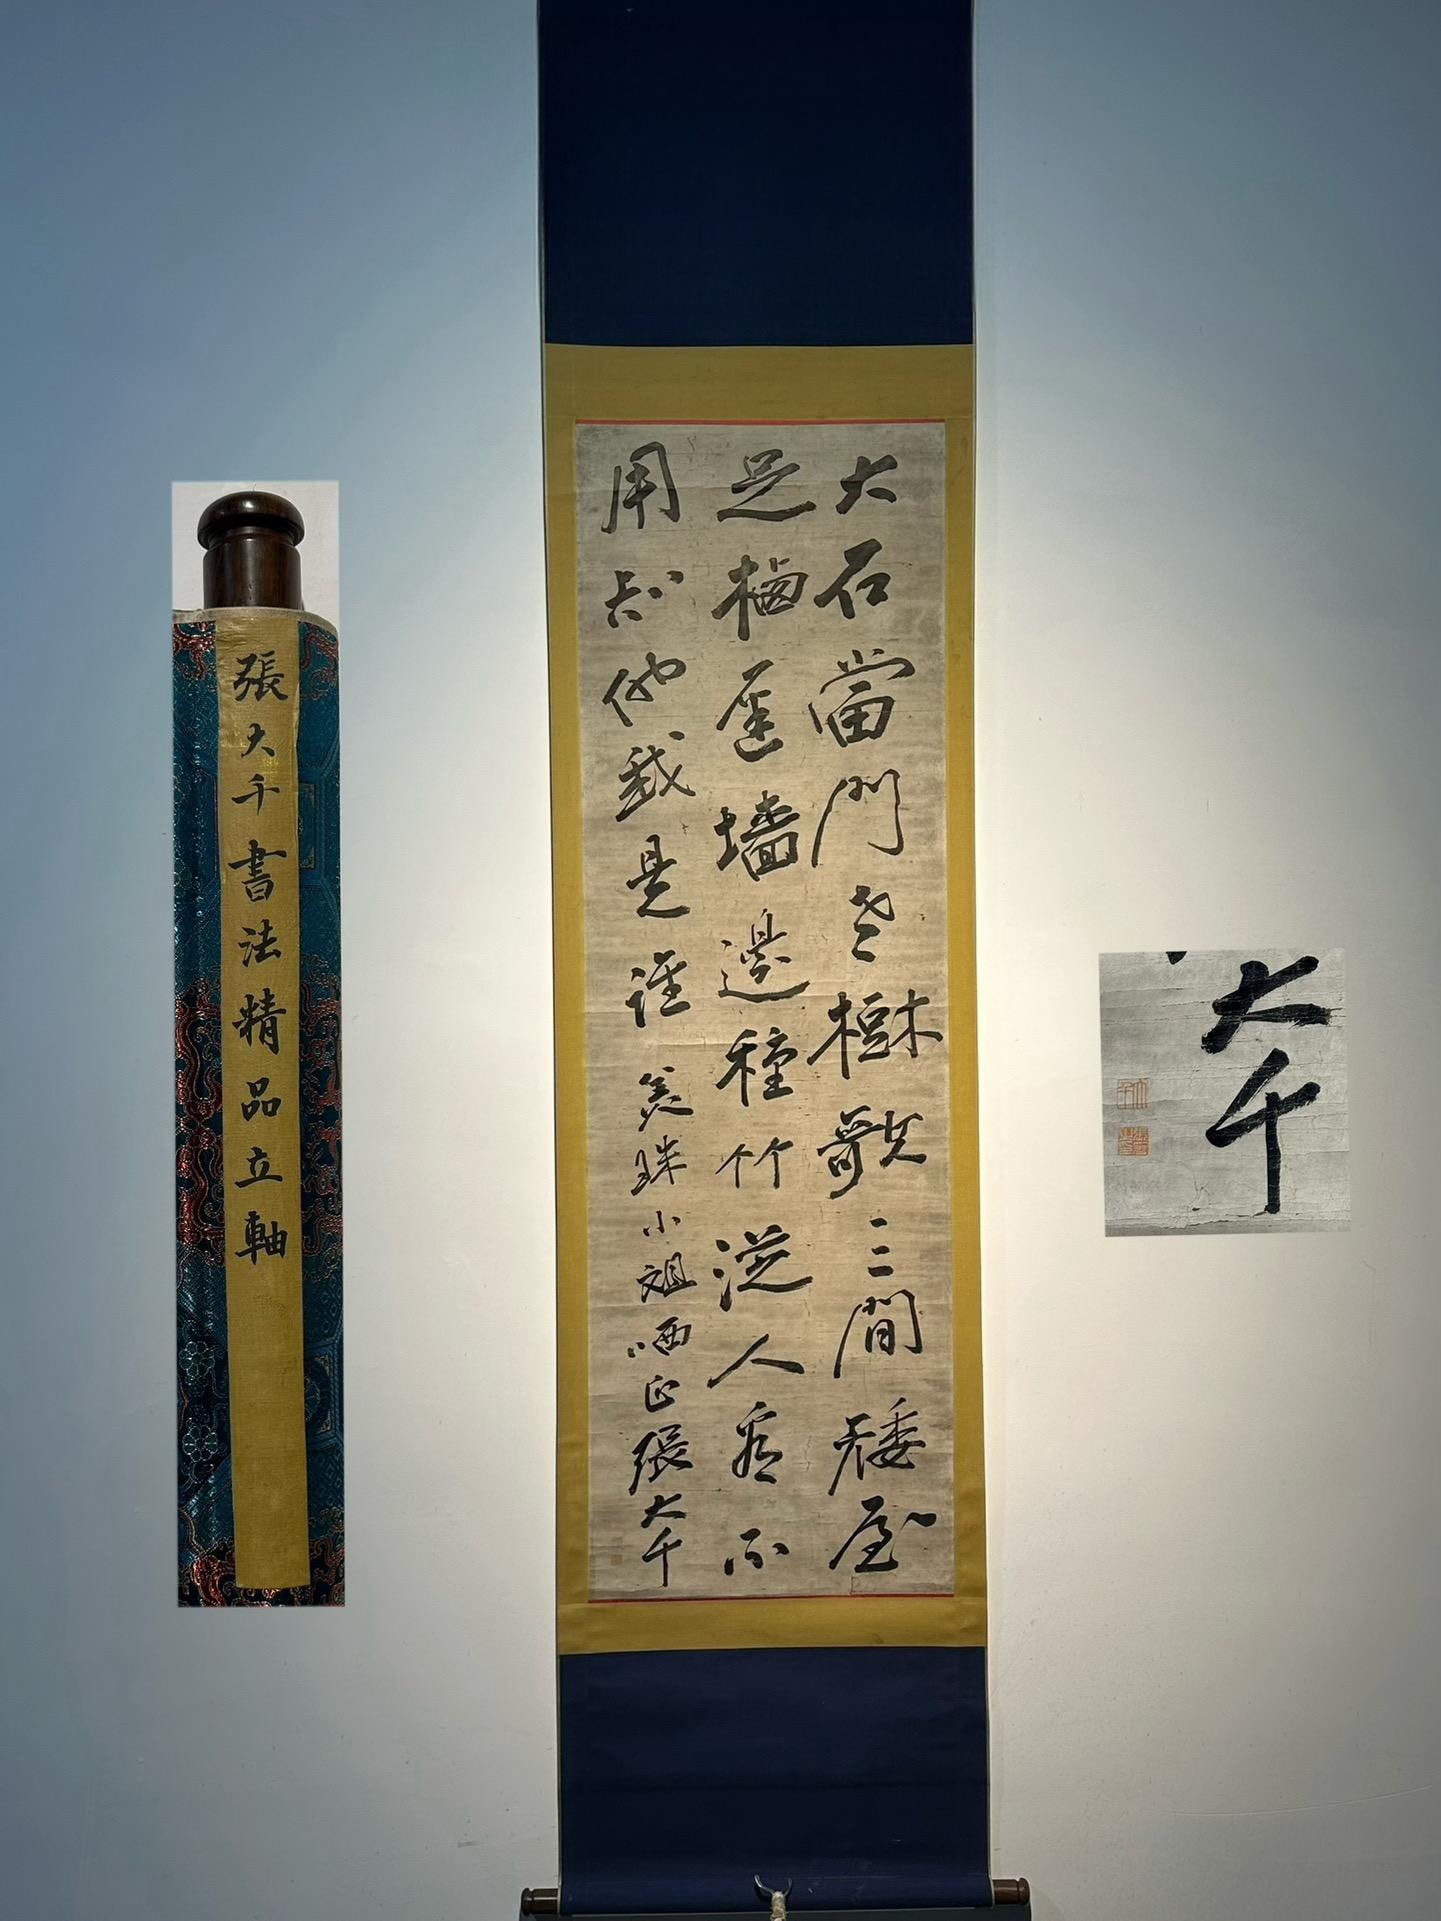 大石當門老樹敧三間矮屋
足栖遲墻邊種竹從人看不
用知他我是誰 美珠小姐哂正張大千
張大千書法精品立軸
大千